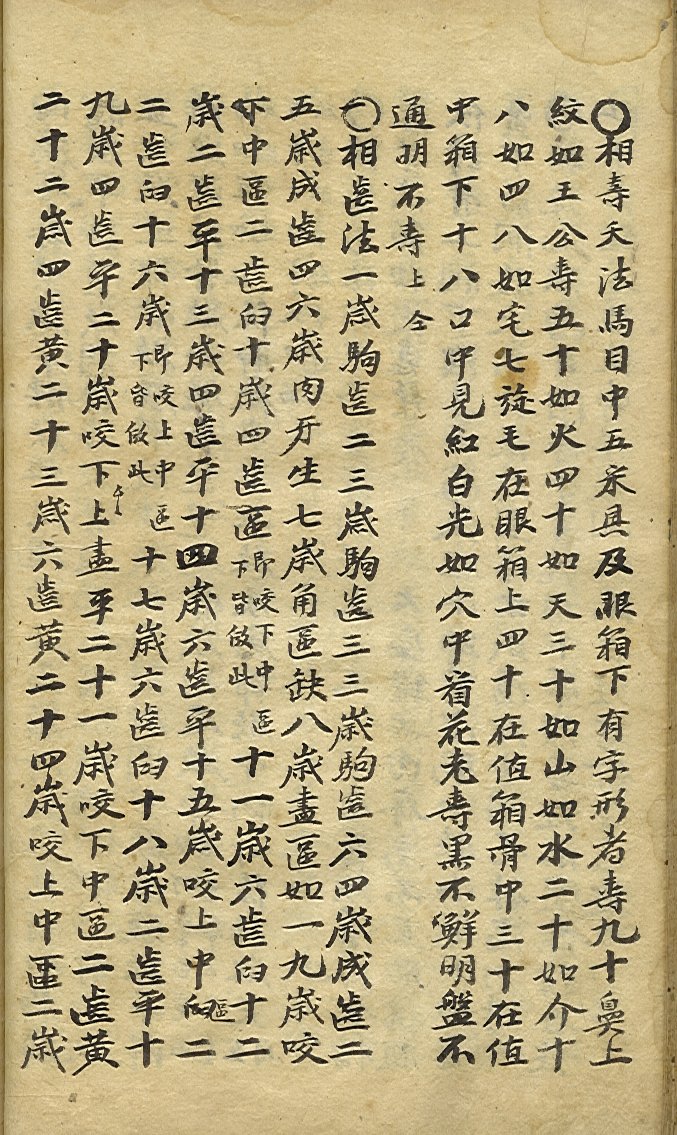 〇相壽夭法馬目中五采具及眼箱下有字形者壽九十鼻上
紋如王公壽五十如火四十如天三十如山如水二十如介十
八如四八如宅七旋毛在眼箱上四十在值箱骨中三十在值
中箱下十八口中見紅白光如穴中看花老壽黑不鮮明盤不
通明不壽上仝
一〇相齒法一歲駒齒二三歲駒齒三三歲駒齒六四歲成齒二
五歲成齒四六歲肉牙生七歲角區缺八歲盡區如一九歲咬
下中區二齒臼十歲四齒區即咬下中區下皆倣此十一歲六齒臼十二
歲二齒平十三歲四齒平十四歲六齒平十五歲咬上中區臼二
二齒臼十六歲即咬上中區下皆倣此十七歲六齒臼十八歲二齒平十
九歲四齒平二十歲咬下上盡平二十一歲咬下中區二齒黃
二十二歲四齒黃二十三歲六齒黃二十四歲咬上中區二歲